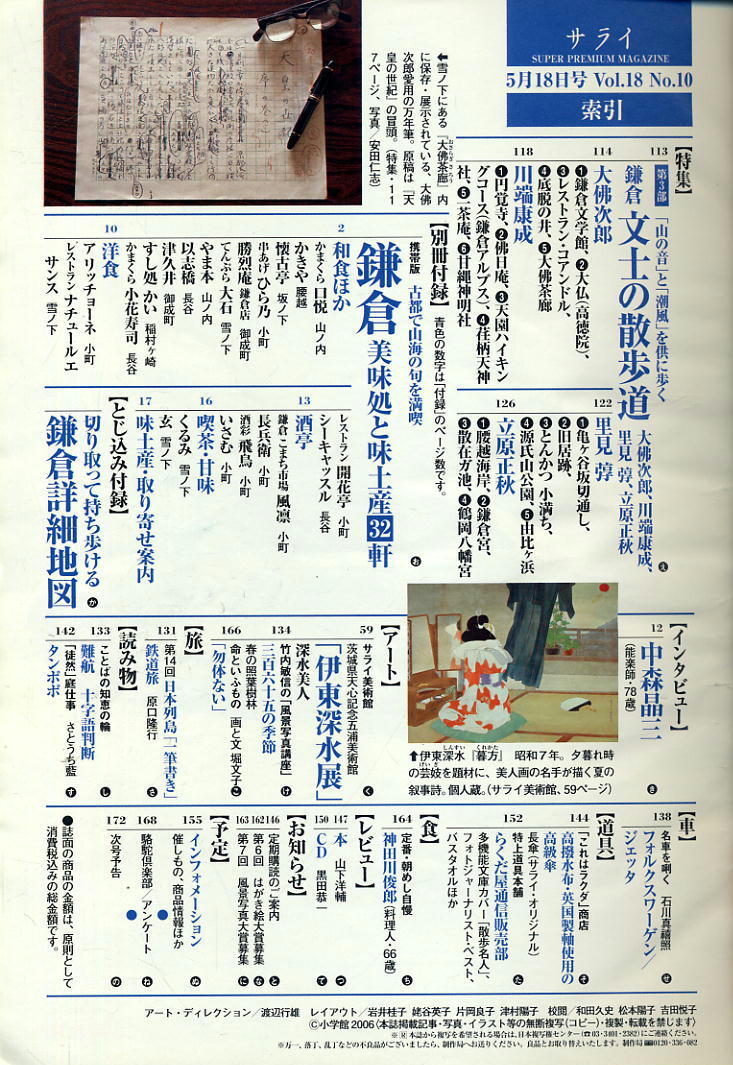 サライ
SUPER PREMIUM MAGAZINE
5月18日号 Vol.18 No.10
索引
⬅雪ノ下にある「大佛茶廊」内
に保存・展示されている、大佛
次郎愛用の万年筆。原稿は『天
皇の世紀』の冒頭。(特集・11
7ページ、写真/安田仁志)
【特集】
113
第3部
「山の音」と「潮風」を供に歩く
鎌倉 文士の散歩道
大佛次郎、川端康成、
里見弴、立原正秋
え
114
大佛次郎
❶鎌倉文学館、❷大仏(高徳院)、
❸レストラン・コアンドル、
❹底脱の井、❺大佛茶廊
118
川端康成
❶円覚寺、❷佛日庵、❸天園ハイキン
グコース(鎌倉アルプス)、❹荏柄天神
社、❺一茶庵、❻甘縄神明社
122
里見弴
❶亀ヶ谷坂切通し、
❷旧居跡、
❸とんかつ 小満ち、
❹源氏山公園、❺由比ヶ浜
126
立原正秋
❶腰越海岸、❷鎌倉宮、
❸散在ガ池、❹鶴岡八幡宮
【別冊付録】
青色の数字は「付録」のページ数です。
携帯版 古都で山海の旬を満喫
鎌倉 美味処と味土産32軒
お
2
和食ほか
かまくら 口悦 山ノ内
かきや 腰越
懐古亭 坂ノ下
串あげ ひら乃 小町
勝烈庵 鎌倉店 御成町
てんぷら 大石 雪ノ下
やま本 山ノ内
以志橋 長谷
津久井 御成町
すし処 かい 稲村ヶ崎
かまくら 小花寿司 長谷
10
洋食
アリッチョーネ 小町
レストラン ナチュール エ
サンス 雪ノ下
レストラン 開花亭 小町
シーキャッスル 長谷
13
酒亭
鎌倉 こまち市場 風凛 小町
長兵衛 小町
酒彩 飛鳥 小町
いさむ 小町
16
喫茶・甘味
くるみ 雪ノ下
玄 雪ノ下
17
味土産・取り寄せ案内
【とじ込み付録】
切り取って持ち歩ける
鎌倉詳細地図
か
【インタビュー】
12
中森晶三
(能楽師・78歳)
き
⬆伊東深水『暮方』 昭和7年。夕暮れ時
の芸妓を題材に、美人画の名手が描く夏の
叙事詩。個人蔵。(サライ美術館、59ページ)
【アート】
59
サライ美術館
茨城県天心記念五浦美術館
「伊東深水展」
く
深水美人
134
竹内敏信の「風景写真講座」
三百六十五の季節
け
春の照葉樹林
166
命といふもの 画と文 堀文子
「勿体ない」
こ
【旅】
131
第14回 日本列島「一筆書き」
鉄道旅 原口隆行
さ
【読み物】
133
ことばの知恵の輪
難航 十字語判断
し
142
「徒然」庭仕事 さとうち藍
タンポポ
す
【車】
138
名車を囁く 石川真禧照
フォルクスワーゲン/
ジェッタ
せ
【道具】
144
「これはラクダ」商店
高撥水布・英国製軸使用の
高級傘
そ
長傘(サライ・オリジナル)
152
特上道具本舗
らくだ屋通信販売部
た
多機能文庫カバー「散歩名人」、
フォトジャーナリスト・ベスト、
バスタオルほか
【食】
164
定番・朝めし自慢
神田川俊郎(料理人・66歳)
ち
【レビュー】
147
本 山下洋輔
つ
150
CD 黒田恭一
て
【お知らせ】
146
定期購読のご案内
と
162
第6回 はがき絵大賞募集
な
163
第7回 風景写真大賞募集
に
【予定】
155
インフォメーション
催しもの、商品情報ほか
ぬ
168
駱駝倶楽部/アンケート
ね
172
次号予告
の
●誌面の商品の金額は、原則として
消費税込みの総金額です。
アート・ディレクション/渡辺行雄 レイアウト/岩井桂子 姥谷英子 片岡良子 津村陽子 校閲/和田久史 松本陽子 吉田悦子
Ⓒ小学館2006〈本誌掲載記事・写真・イラスト等の無断複写(コピー)・複製・転載を禁じます〉
※Ⓡ本誌から複写を希望される場合は、日本複写権センター(☎03・3401・2382)にご連絡ください。
※万一、落丁、乱丁などの不良品がございましたら、制作局へお送りください。良品とお取り替えいたします。制作局0120・336・082